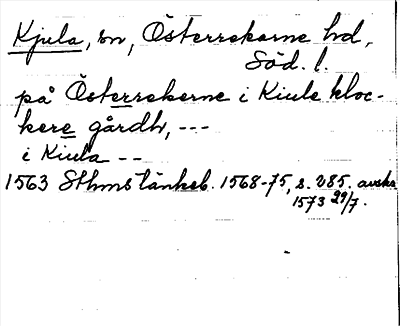 Kjula, sn, Österrekarne hd,
Söd. l.
på Österrekerne i Kiule kloc-
kere gårdh, ---
i Kiula --
1563 Sthms tänkeb. 1568-75, s. 285. avskr.
1573 29/7.